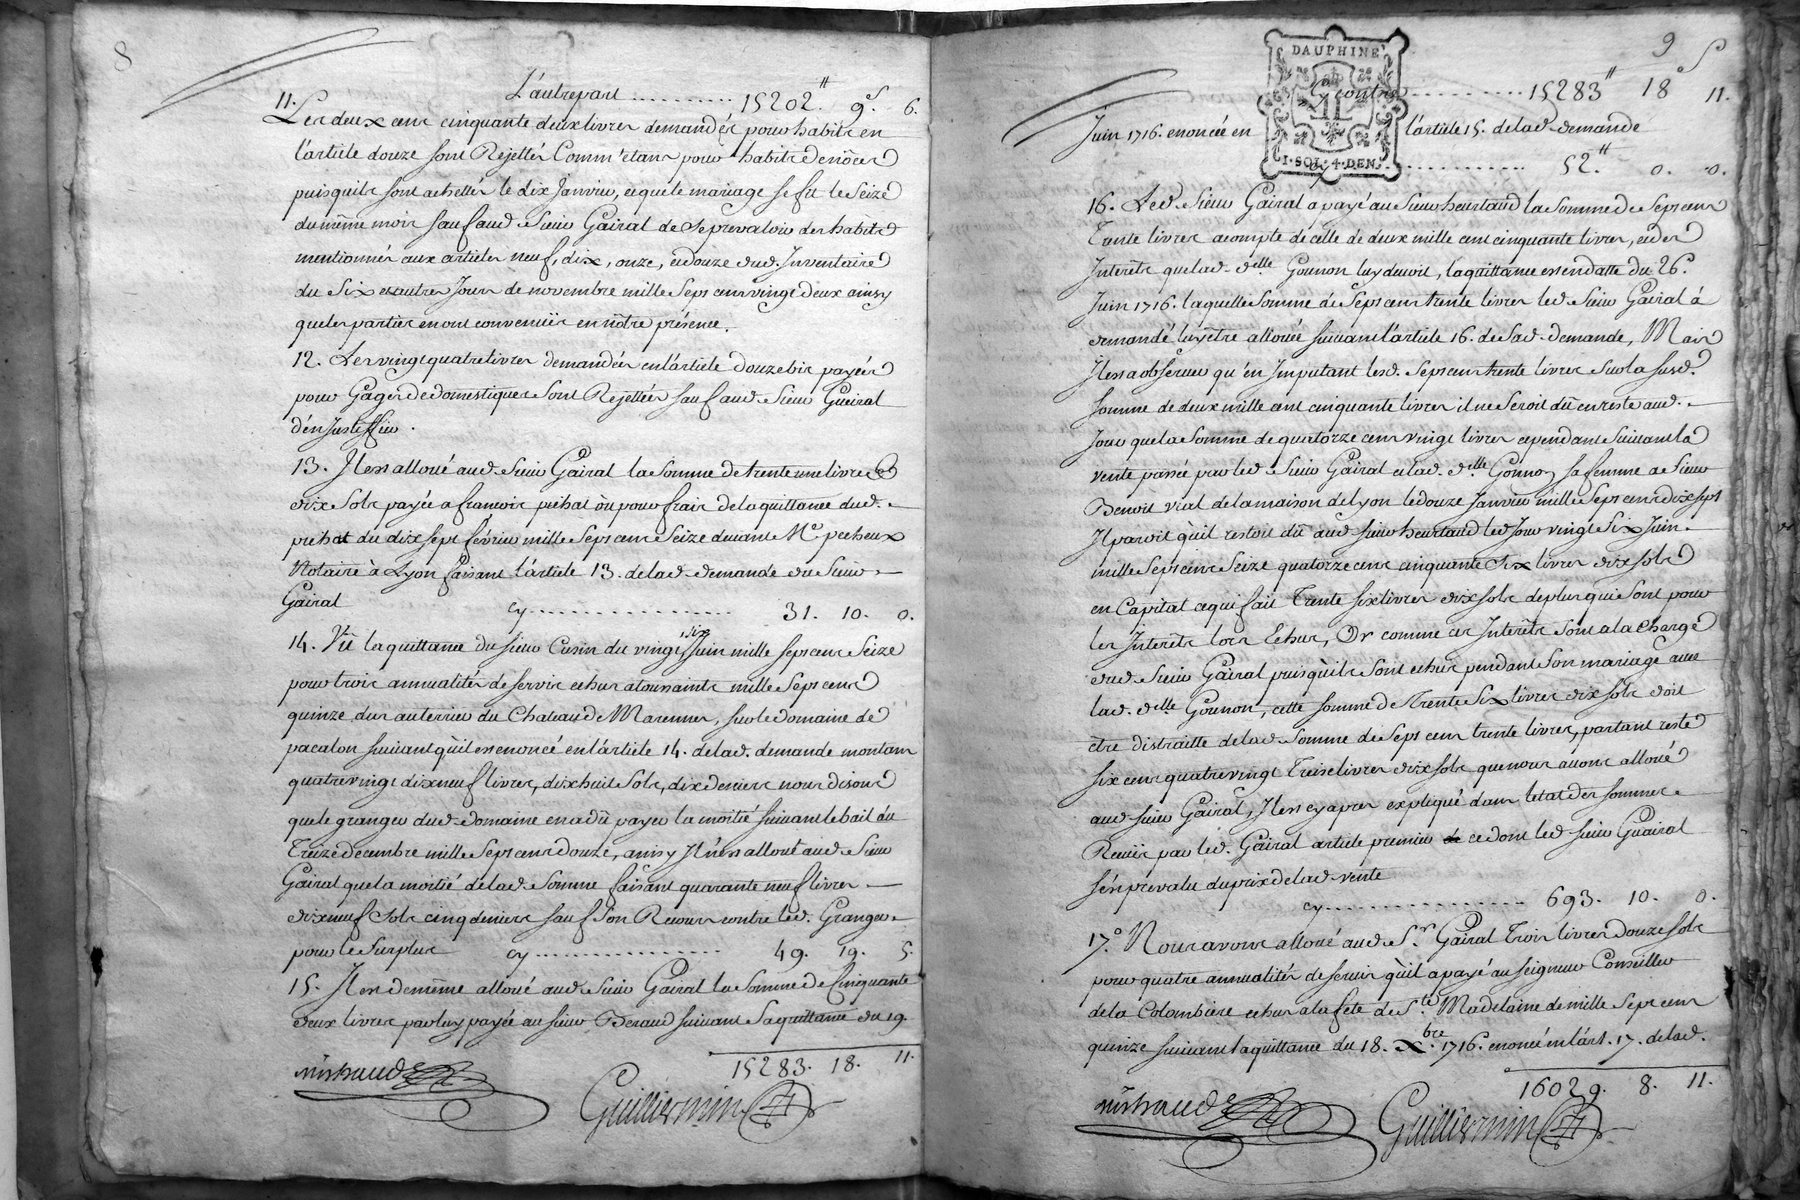 8
L'autrepart .......... 15202.tt 9.s 6.
11. Les deux cens cinquante deux livres demandés pour habits en
l'article douze sont Rejettés Comm'étant pour habits de nôces
puisquils sont achettés le dix Janvier, et que le mariage se fit le Seize
du même mois sauf aud. Sieur Gairal de Se prevaloir des habits
mentionnés aux articles neuf, dix, onze, et douze dud. Inventaire
du Six et autres Jours de novembre mille Sept cens vingt deux ainsy
que les parties en ont convenües en nôtre présence.
12. Les vingt quatre livres demandées en l'article douze bis payées
pour Gages de domestiques Sont Rejettées sauf aud. Sieur Gueiral
d'en Justiffier.
13. Il est alloué aud. Sieur Gairal la Somme de trente une livres
dix Sols payée a francois prehat ou pour frais de la quittance dud.
prehat du dix sept février mille Sept cens Seize devant Me. pecheux
Notaire à Lyon faisant l'article 13. de lad. demande du Sieur
Gairal cy .......... 31. 10. 0.
14. Vû la quittance du sieur Cusin du vingt six Juin mille sept cens Seize
pour trois annualités de servis echus a toussaints mille Sept cens
quinze dus au terrier du Chateau de Marennes, sur le domaine de
pacalon suivant qu'il est enoncé en l'article 14. de lad. demande montant
quatrevingt dix neuf livres, dix huit Sols, dix deniers nous disons
que le granger dud. domaine en a dû payer la moitié suivant le bail du
Treize decembre mille Sept cens douze, ainsy Il n'est alloué aud. Sieur
Gairal que la moitié de lad. Somme faisant quarante neuf livres
dix neuf Sols cinq deniers sauf Son Recours contre led. Granger
pour le Surplus cy .......... 49. 19. 5.
15. Il est de même alloué aud. Sieur Gairal la Somme de Cinquante
deux livres par luy payée au sieur Beraud suivant Sa quittance du 19.
15283. 18. 11.
michaud Guilliermin
9
DAUPHINÉ
I·SOL·4·DEN.
Cy contre .......... 15283tt 18s 11.
Juin 1716. enoncée en l'article 15. de lad. demande
52.tt 0. 0.
16. Led. Sieur Gairal a payé au Sieur heurtaud la Somme de Sept cens
Trente livres acompte de celle de deux mille cent cinquante livres, et des
Interêts que lad. delle Gounon luy devoit, la quittance est en datte du 26.
Juin 1716. laquelle Somme de Sept cens trente livres led. Sieur Gairal à
demandé luy être allouée suivant l'article 16. de Sad. demande, Mais
Il est a observer qu'en Imputant lesd. Sept cens trente livres Sur la susd.
Somme de deux mille cent cinquante livres il ne Seroit dû en reste aud.
Jour que la Somme de quatorze cens vingt livres cependant Suivant la
vente passée par led. Sieur Gairal et lad. delle Gounon sa femme a Sieur
Benoit vial de la maison de Lyon le douze Janvier mille Sept cens dix sept
Il paroit qu'il restoit dû aud. Sieur heurtaud led. Jour vingt Six Juin
mille Sept cens Seize quatorze cens cinquante Six livres dix sols
en Capital ce qui fait Trente six livres dix sols de plus qui Sont pour
les Interêts lors Echus, Or comme ces Interêts Sont a la charge
dud. Sieur Gairal puisqu'ils Sont echus pendant Son mariage avec
lad. delle Gounon, cette somme de Trente Six livres dix sols doit
être distraitte de lad. Somme de Sept cens trente livres, partant reste
six cens quatre vingt Treise livres dix sols que nous avons alloué
aud. sieur Gairal, Il est cy apres expliqué dans l'etat des sommes
Receües par led. Gairal article premier ce dont led. Sieur Guairal
s'es prevalu du prix de lad. vente
cy .......... 693. 10. 0.
17.o Nous avons alloué aud. Sr. Gairal Trois livres douze sols
pour quatre annualités de servis qu'il a payé au Seigneur Conseiller
de la Colombiere echus a la fete de Ste. Madelaine de mille Sept cens
quinze suivant la quittance du 18. Xbre. 1716. enoncé en l'art. 17. de lad.
16029. 8. 11.
michaud Guilliermin